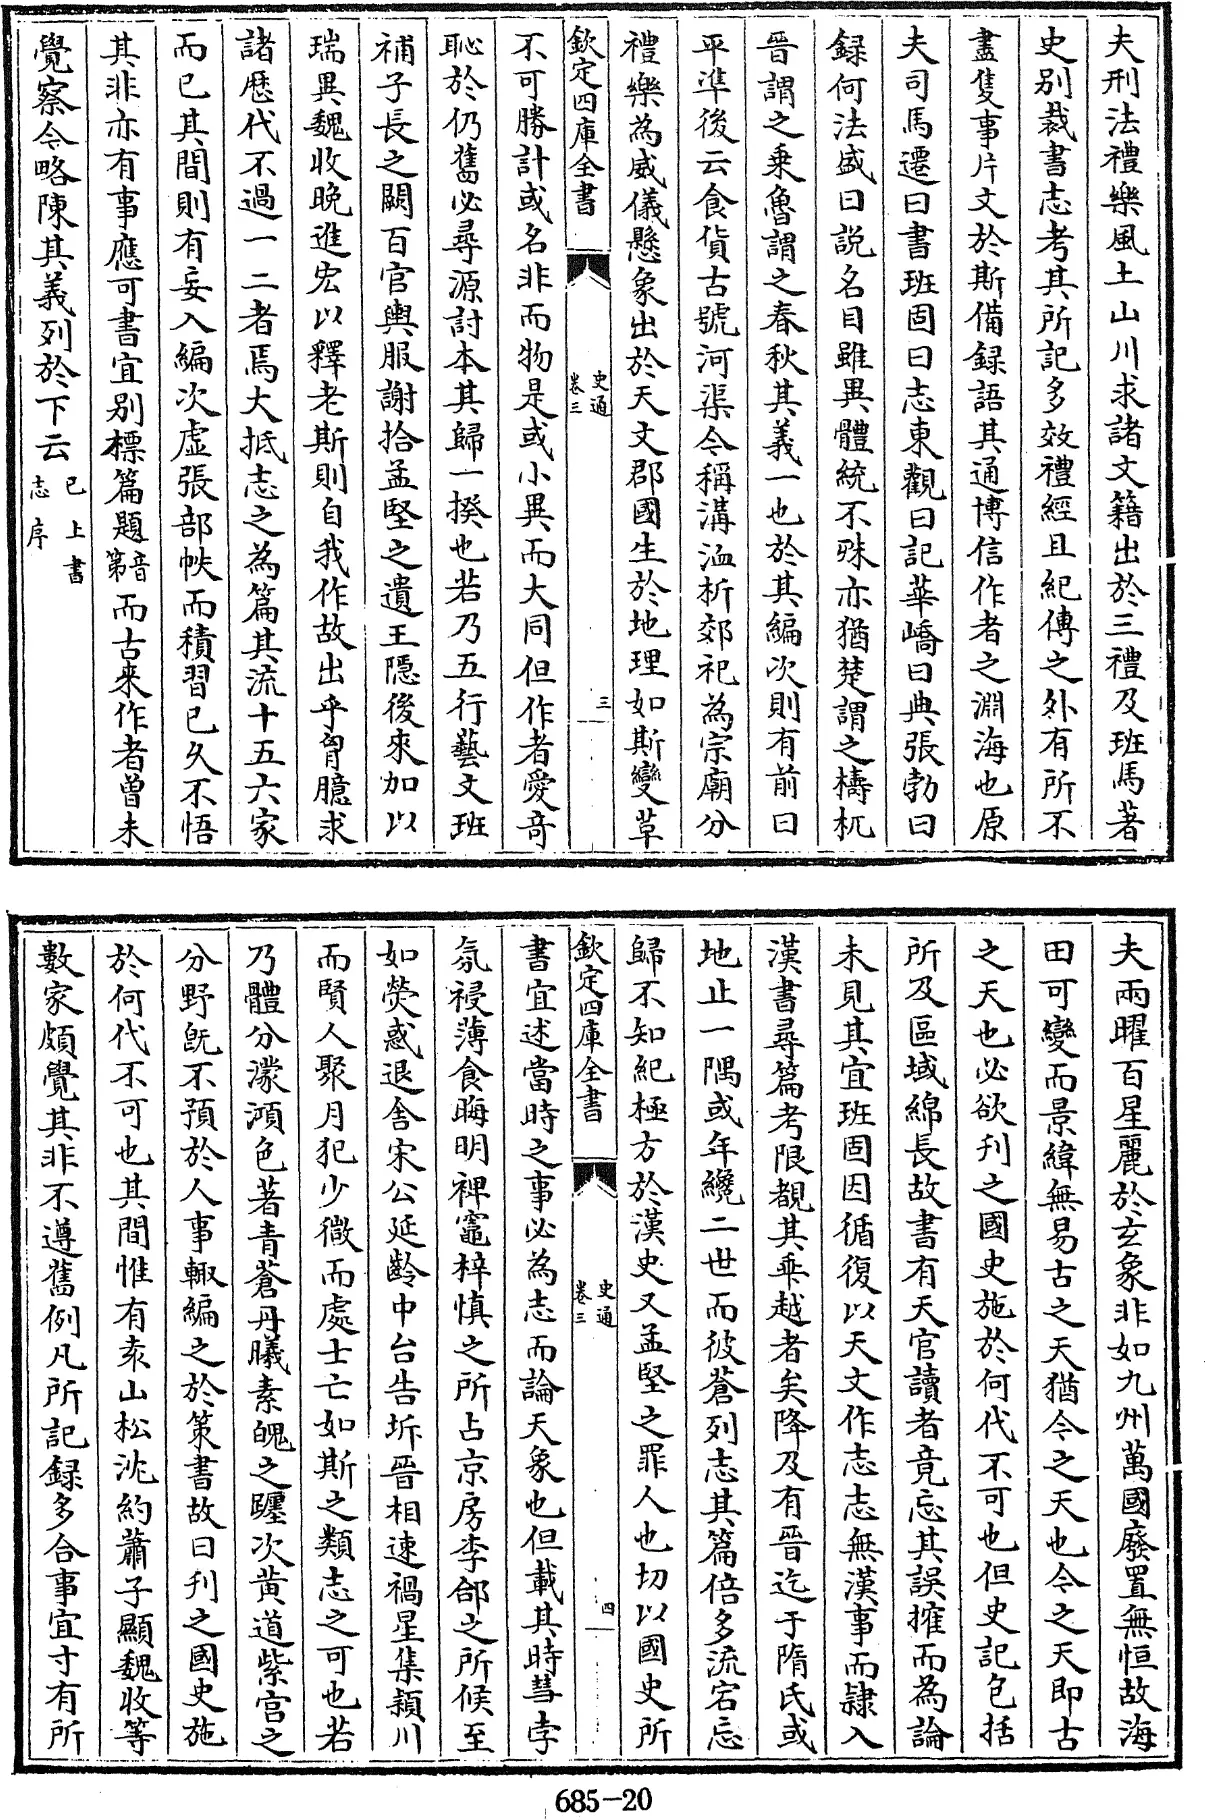 夫刑法禮樂風土山川求諸文籍出於三禮及班馬著
史別裁書志考其所記多效禮經且紀傳之外有所不
盡隻事片文於斯備録語其通博信作者之淵海也原
夫司馬遷曰書班固曰志東觀曰記華嶠曰典張勃曰
録何法盛曰説名目雖異體統不殊亦猶楚謂之檮杌
晉謂之乗魯謂之春秋其義一也於其編次則有前曰
平準後云食貨古號河渠今稱溝洫析郊祀為宗廟分
禮樂為威儀懸象出於天文郡國生於地理如斯變革
欽定四庫全書
史通
卷三
三
不可勝計或名非而物是或小異而大同但作者愛竒
恥於仍舊必尋源討本其歸一揆也若乃五行藝文班
補子長之闕百官輿服謝拾孟堅之遺王隱後來加以
瑞異魏收晚進宏以釋老斯則自我作故出乎胷臆求
諸歴代不過一二者焉大抵志之為篇其流十五六家
而已其間則有妄入編次虚張部帙而積習已久不悟
其非亦有事應可書宜别標篇題音第而古來作者曾未
覺察今略陳其義列於下云已上書志序
夫兩曜百星麗於玄象非如九州萬國廢置無恒故海
田可變而景緯無易古之天猶今之天也今之天即古
之天也必欲刋之國史施於何代不可也但史記包括
所及區域綿長故書有天官讀者竟忘其誤㩁而為論
未見其宜班固因循復以天文作志志無漢事而隸入
漢書尋篇考限覩其乖越者矣降及有晉迄于隋氏或
地止一隅或年纔二世而彼蒼列志其篇倍多流宕忘
歸不知紀極方於漢史又孟堅之罪人也切以國史所
欽定四庫全書
史通
卷三
四
書宜述當時之事必為志而論天象也但載其時彗孛
氛祲薄食晦明裨竈梓慎之所占京房李郃之所候至
如熒惑退舍宋公延齡中台告坼晉相速禍星集潁川
而賢人聚月犯少微而處士亡如斯之類志之可也若
乃體分濛澒色著青蒼丹曦素魄之躔次黄道紫宫之
分野旣不預於人事輙編之於策書故曰刋之國史施
於何代不可也其間惟有袁山松沈約蕭子顯魏收等
數家頗覺其非不遵舊例凡所記録多合事宜寸有所
685-20